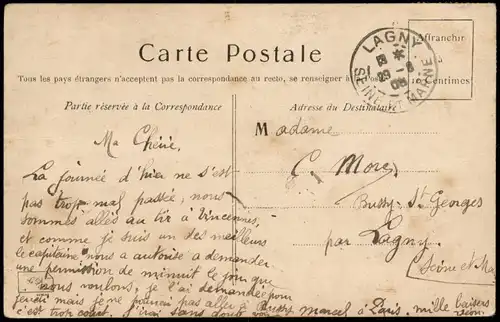 Carte Postale
Affranchir
Centimes
LAGNY
SEINE-ET-MARNE
Tous les pays étrangers n'acceptent pas la correspondance au recto, se renseigner à la Poste
Partie réservée à la Correspondance
Adresse du Destinataire
Ma Chérie,
La journée d'hier ne s'est
pas trop mal passée, nous
sommes allés au tir à Vincennes,
et comme je suis un des meilleurs
le capitaine nous a autorisé à demander
une permission de minuit le jour que
nous voulons, je l'ai demandée pour
jeudi mais je ne pourrai pas aller à Bussy
c'est trop court. j'irai sans doute voir Marcel à Paris, mille baisers
Léon.
Madame
C. Morez
Bussy-St Georges
par Lagny
Seine et Ma